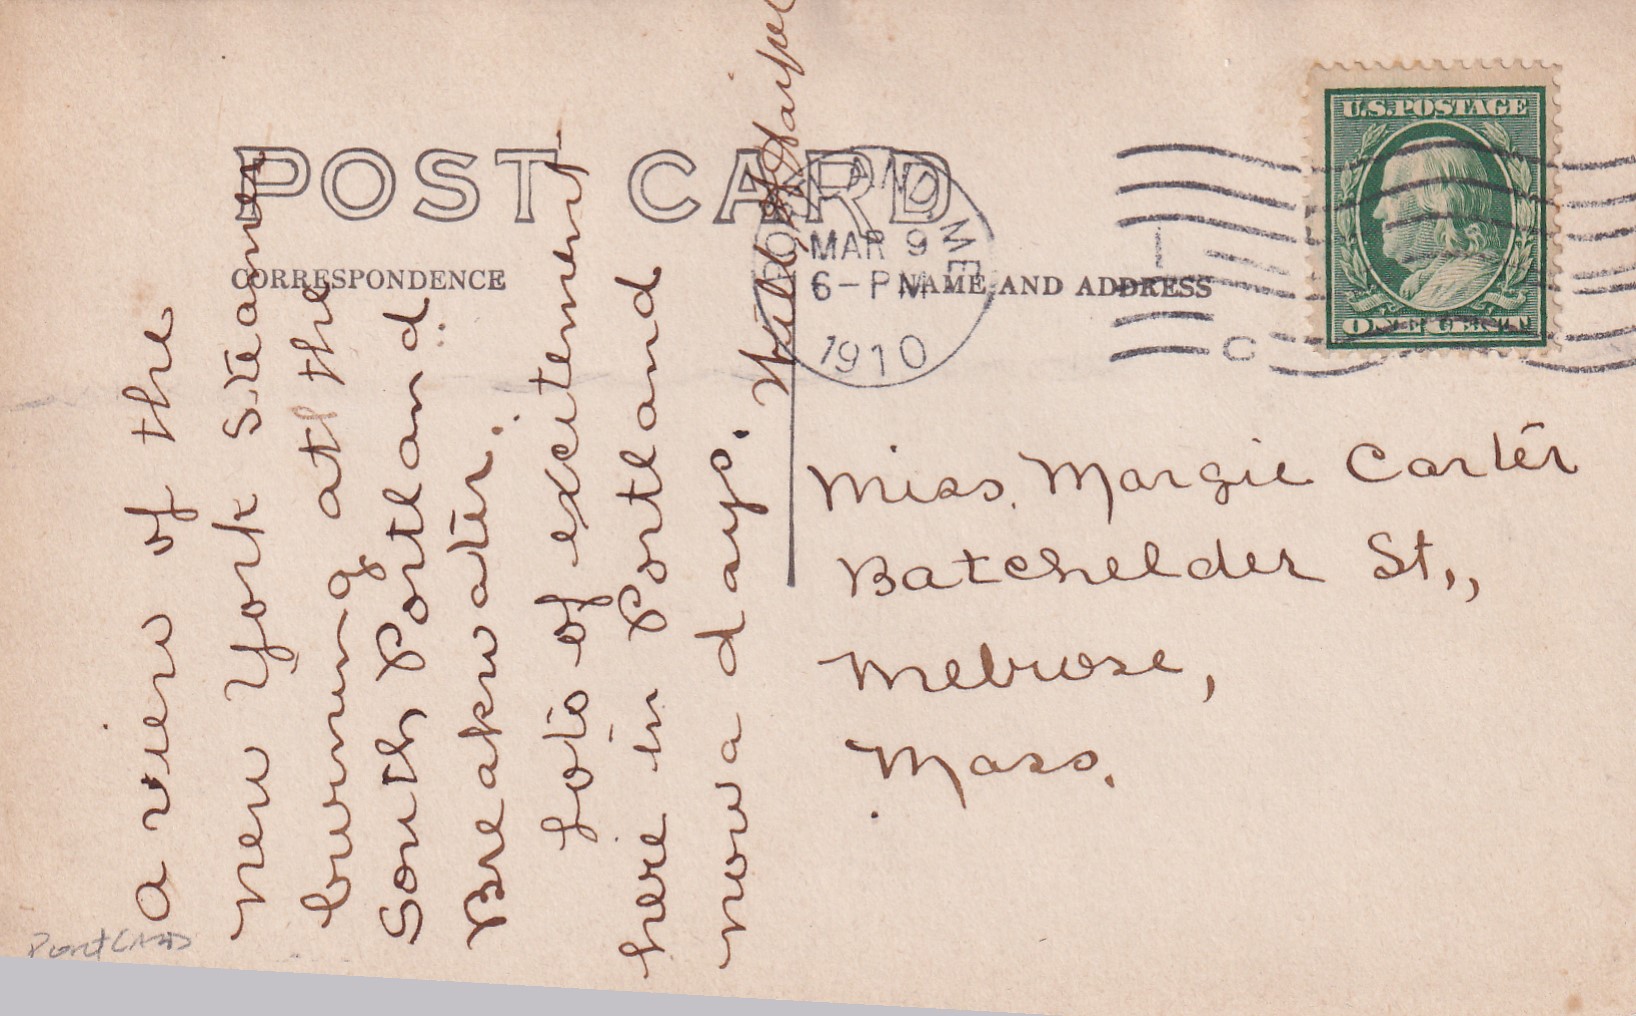 POST CARD
CORRESPONDENCE
NAME AND ADDRESS
U.S.POSTAGE
ONE CENT
PORTLAND ME
MAR 9
6-PM
1910
C
a view of the
new York Steamer
burning at the
South Portland
Breakwater.
Lots of excitement
here in Portland
now a days.
Miss. Margie Carter
Batchelder St.,
Melrose,
Mass.